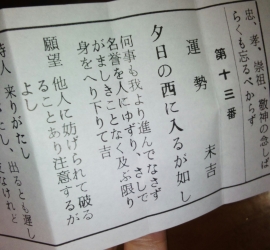 忠、孝、崇祖、敬神の念しば
らくも忘るべからず
第十三番
運勢　末吉
夕日の西に入るが如し
何事も我より進んでなさず
名誉を人にゆずり、さしで
がましきことなく及ぶ限り
身をへり下りて吉
願望　他人に妨げられて破る
ることあり注意するが
よし
待人　来りがたし
出るとも遅し